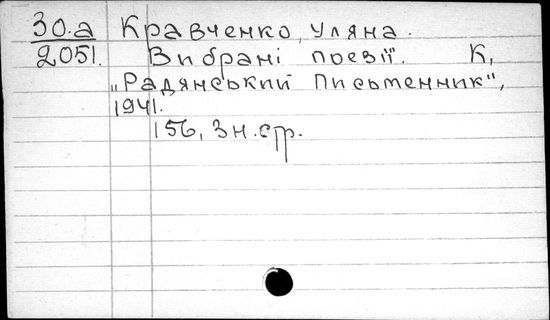 30.а Кравченко, Уляна.
2051. Вибрані поезії. К,
„Радянський Письменник",
1941.
156, 3 н. стр.